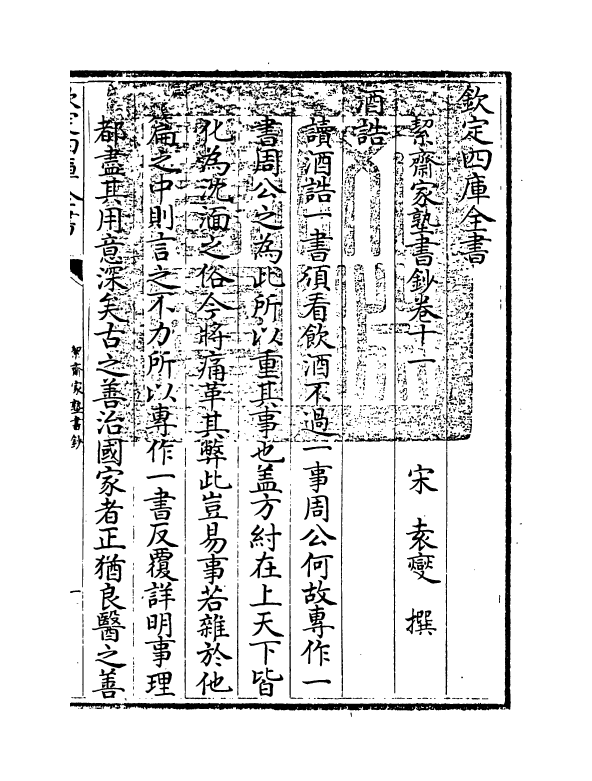 欽定四庫全書
絜齋家塾書鈔卷十一
宋 袁燮 撰
酒誥
讀酒誥一書須看飲酒不過一事周公何故專作一
書周公之為此所以重其事也盖方紂在上天下皆
化為沈湎之俗今將痛革其弊此豈易事若雜於他
篇之中則言之不力所以專作一書反覆詳明事理
都盡其用意深矣古之善治國家者正猶良醫之善
欽定四庫全書
絜齋家塾書鈔
一